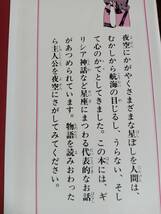 夜空にかがやくさまざまな星ぼしを人間は
むかしから航海の目じるし、うらない、そし
て心のかてとしてきました。この本には、ギ
リシア神話など星座にまつわる代表的なお話
があつめられています。物語を読みおわった
ら主人公を夜空にさがしてみてください。